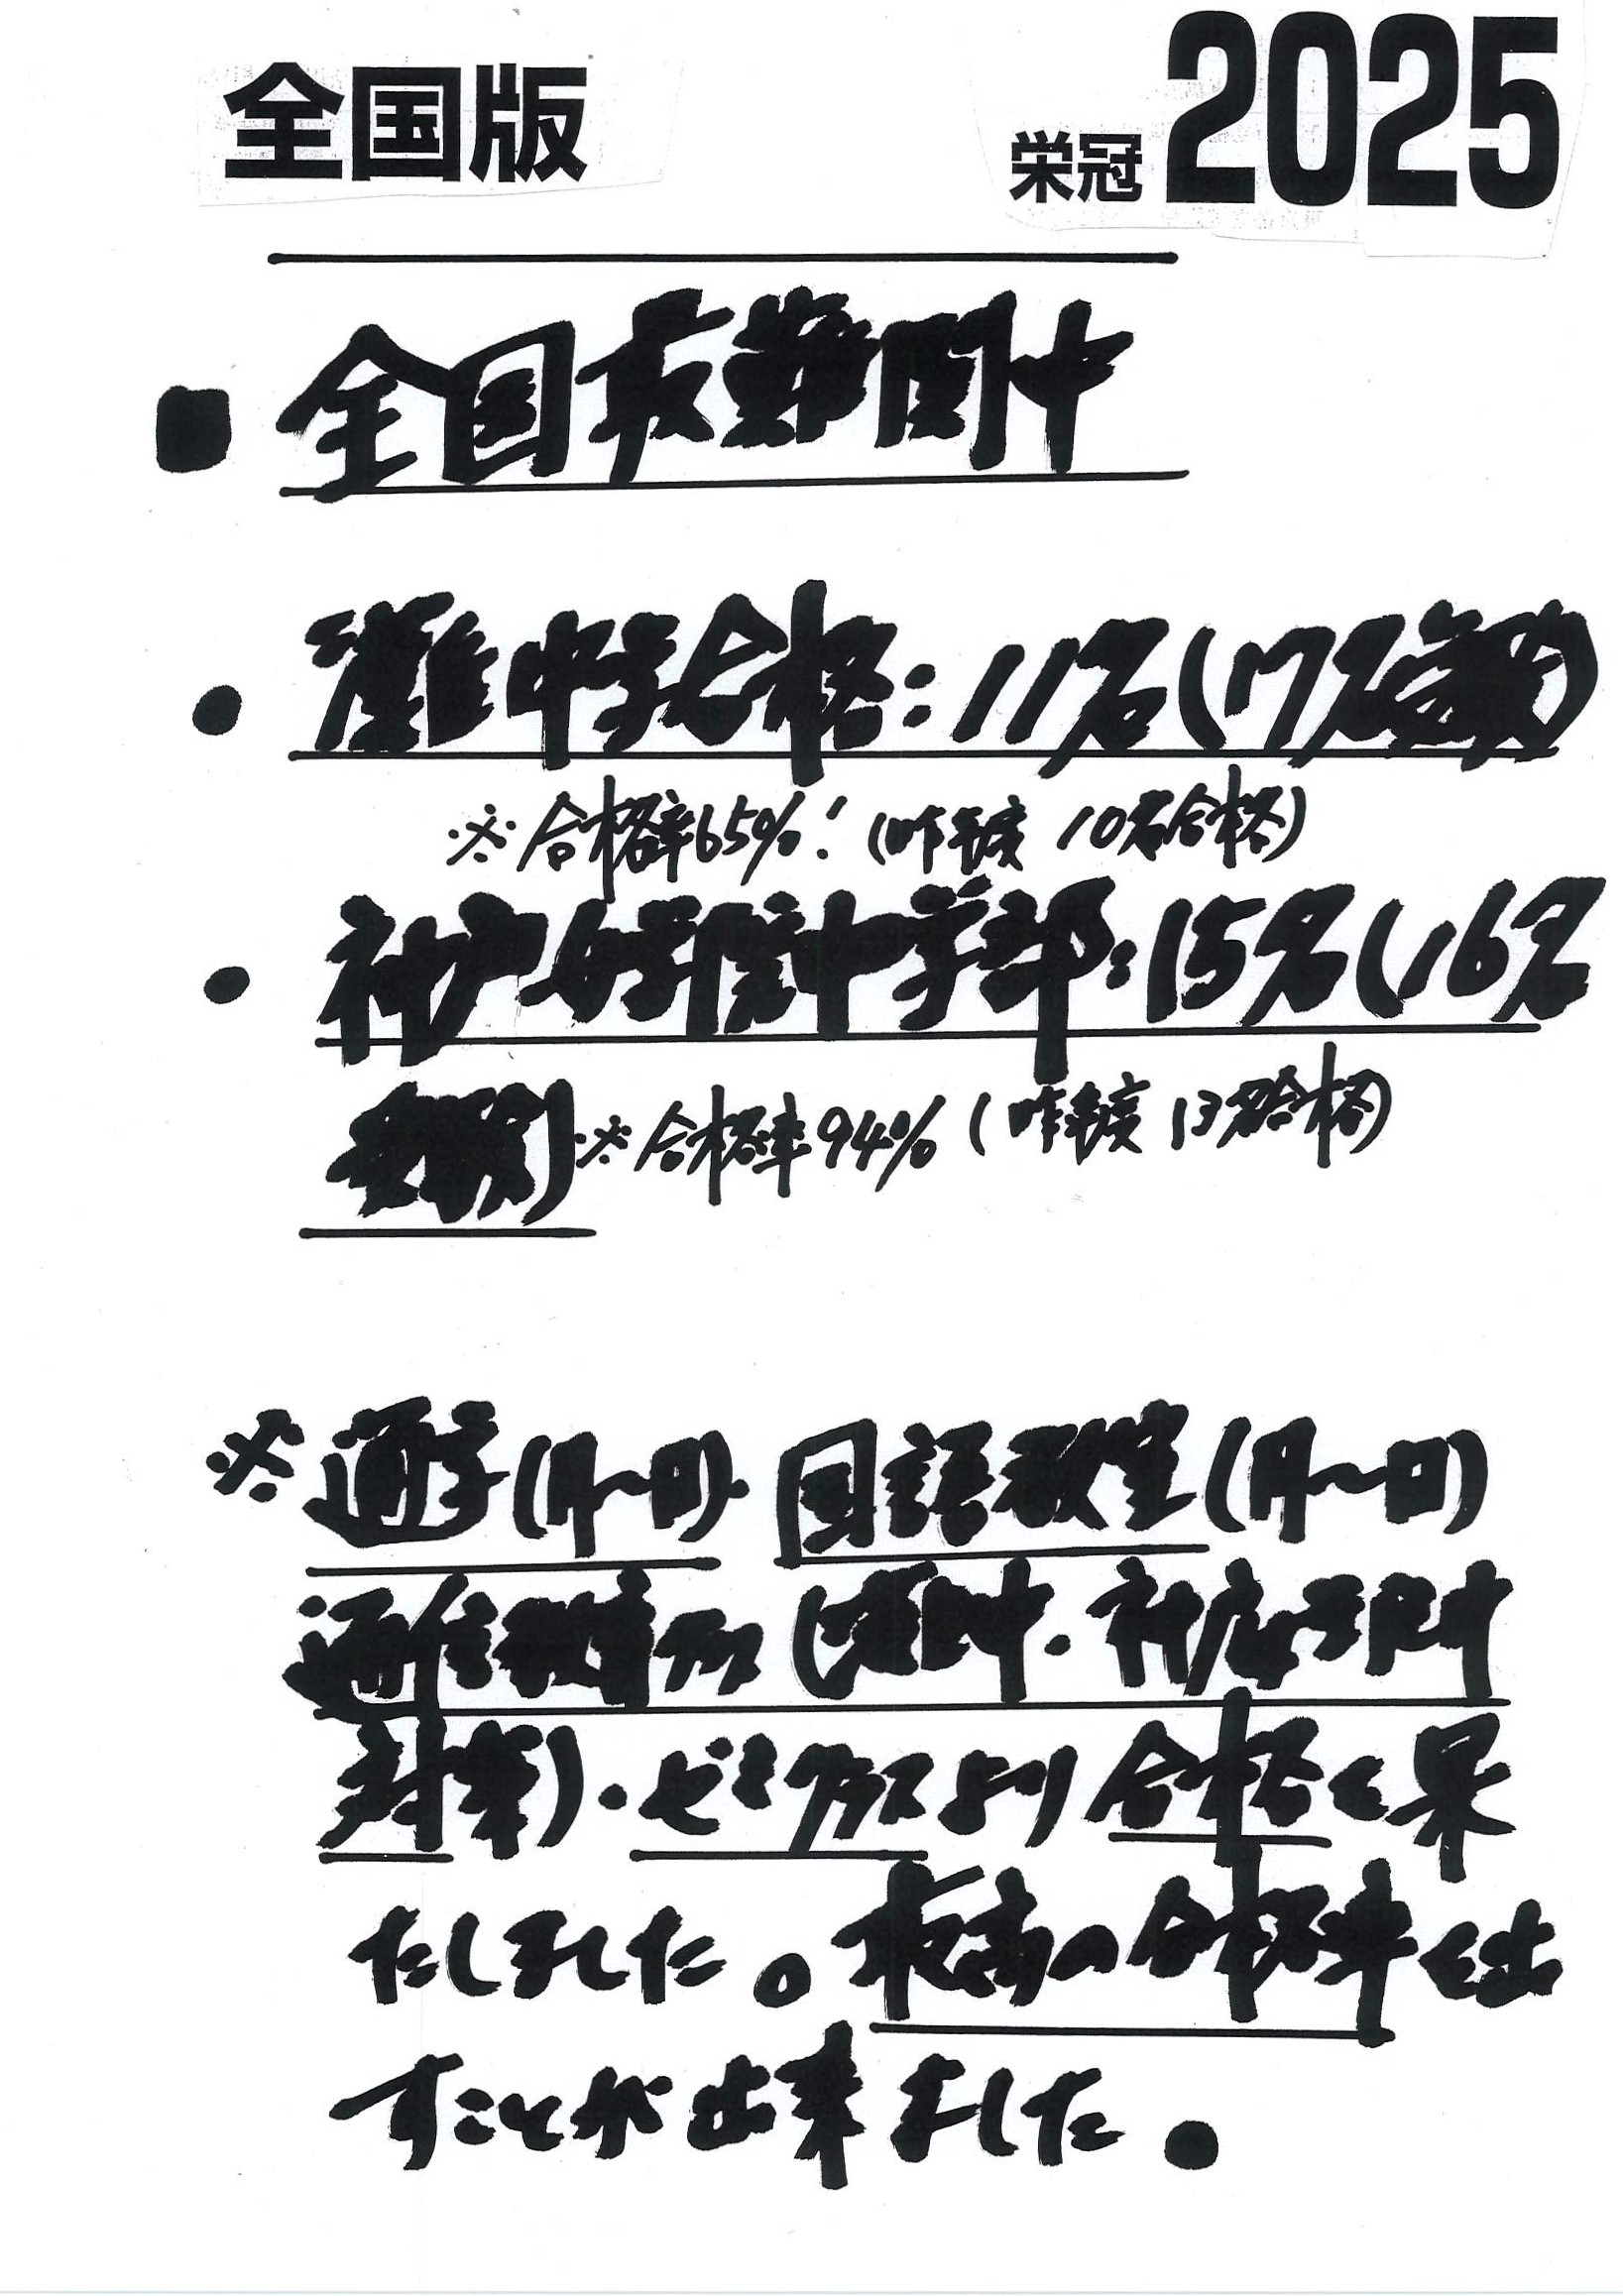 全国版 栄冠 2025
■ 全国最難関中
● 灘中学合格：11名(17名受験)
※合格率65%！(昨年度 10名合格)
● 神戸女学院中学部：15名(16名
受験) ※合格率94% (昨年度 13名合格)
※通学(月〜日)・国語教室(月〜日)
通信教育クラス(灘中・神戸女学院中
対策)・ゼミクラスより合格を果
たしました。最高の合格率を出
すことが出来ました。